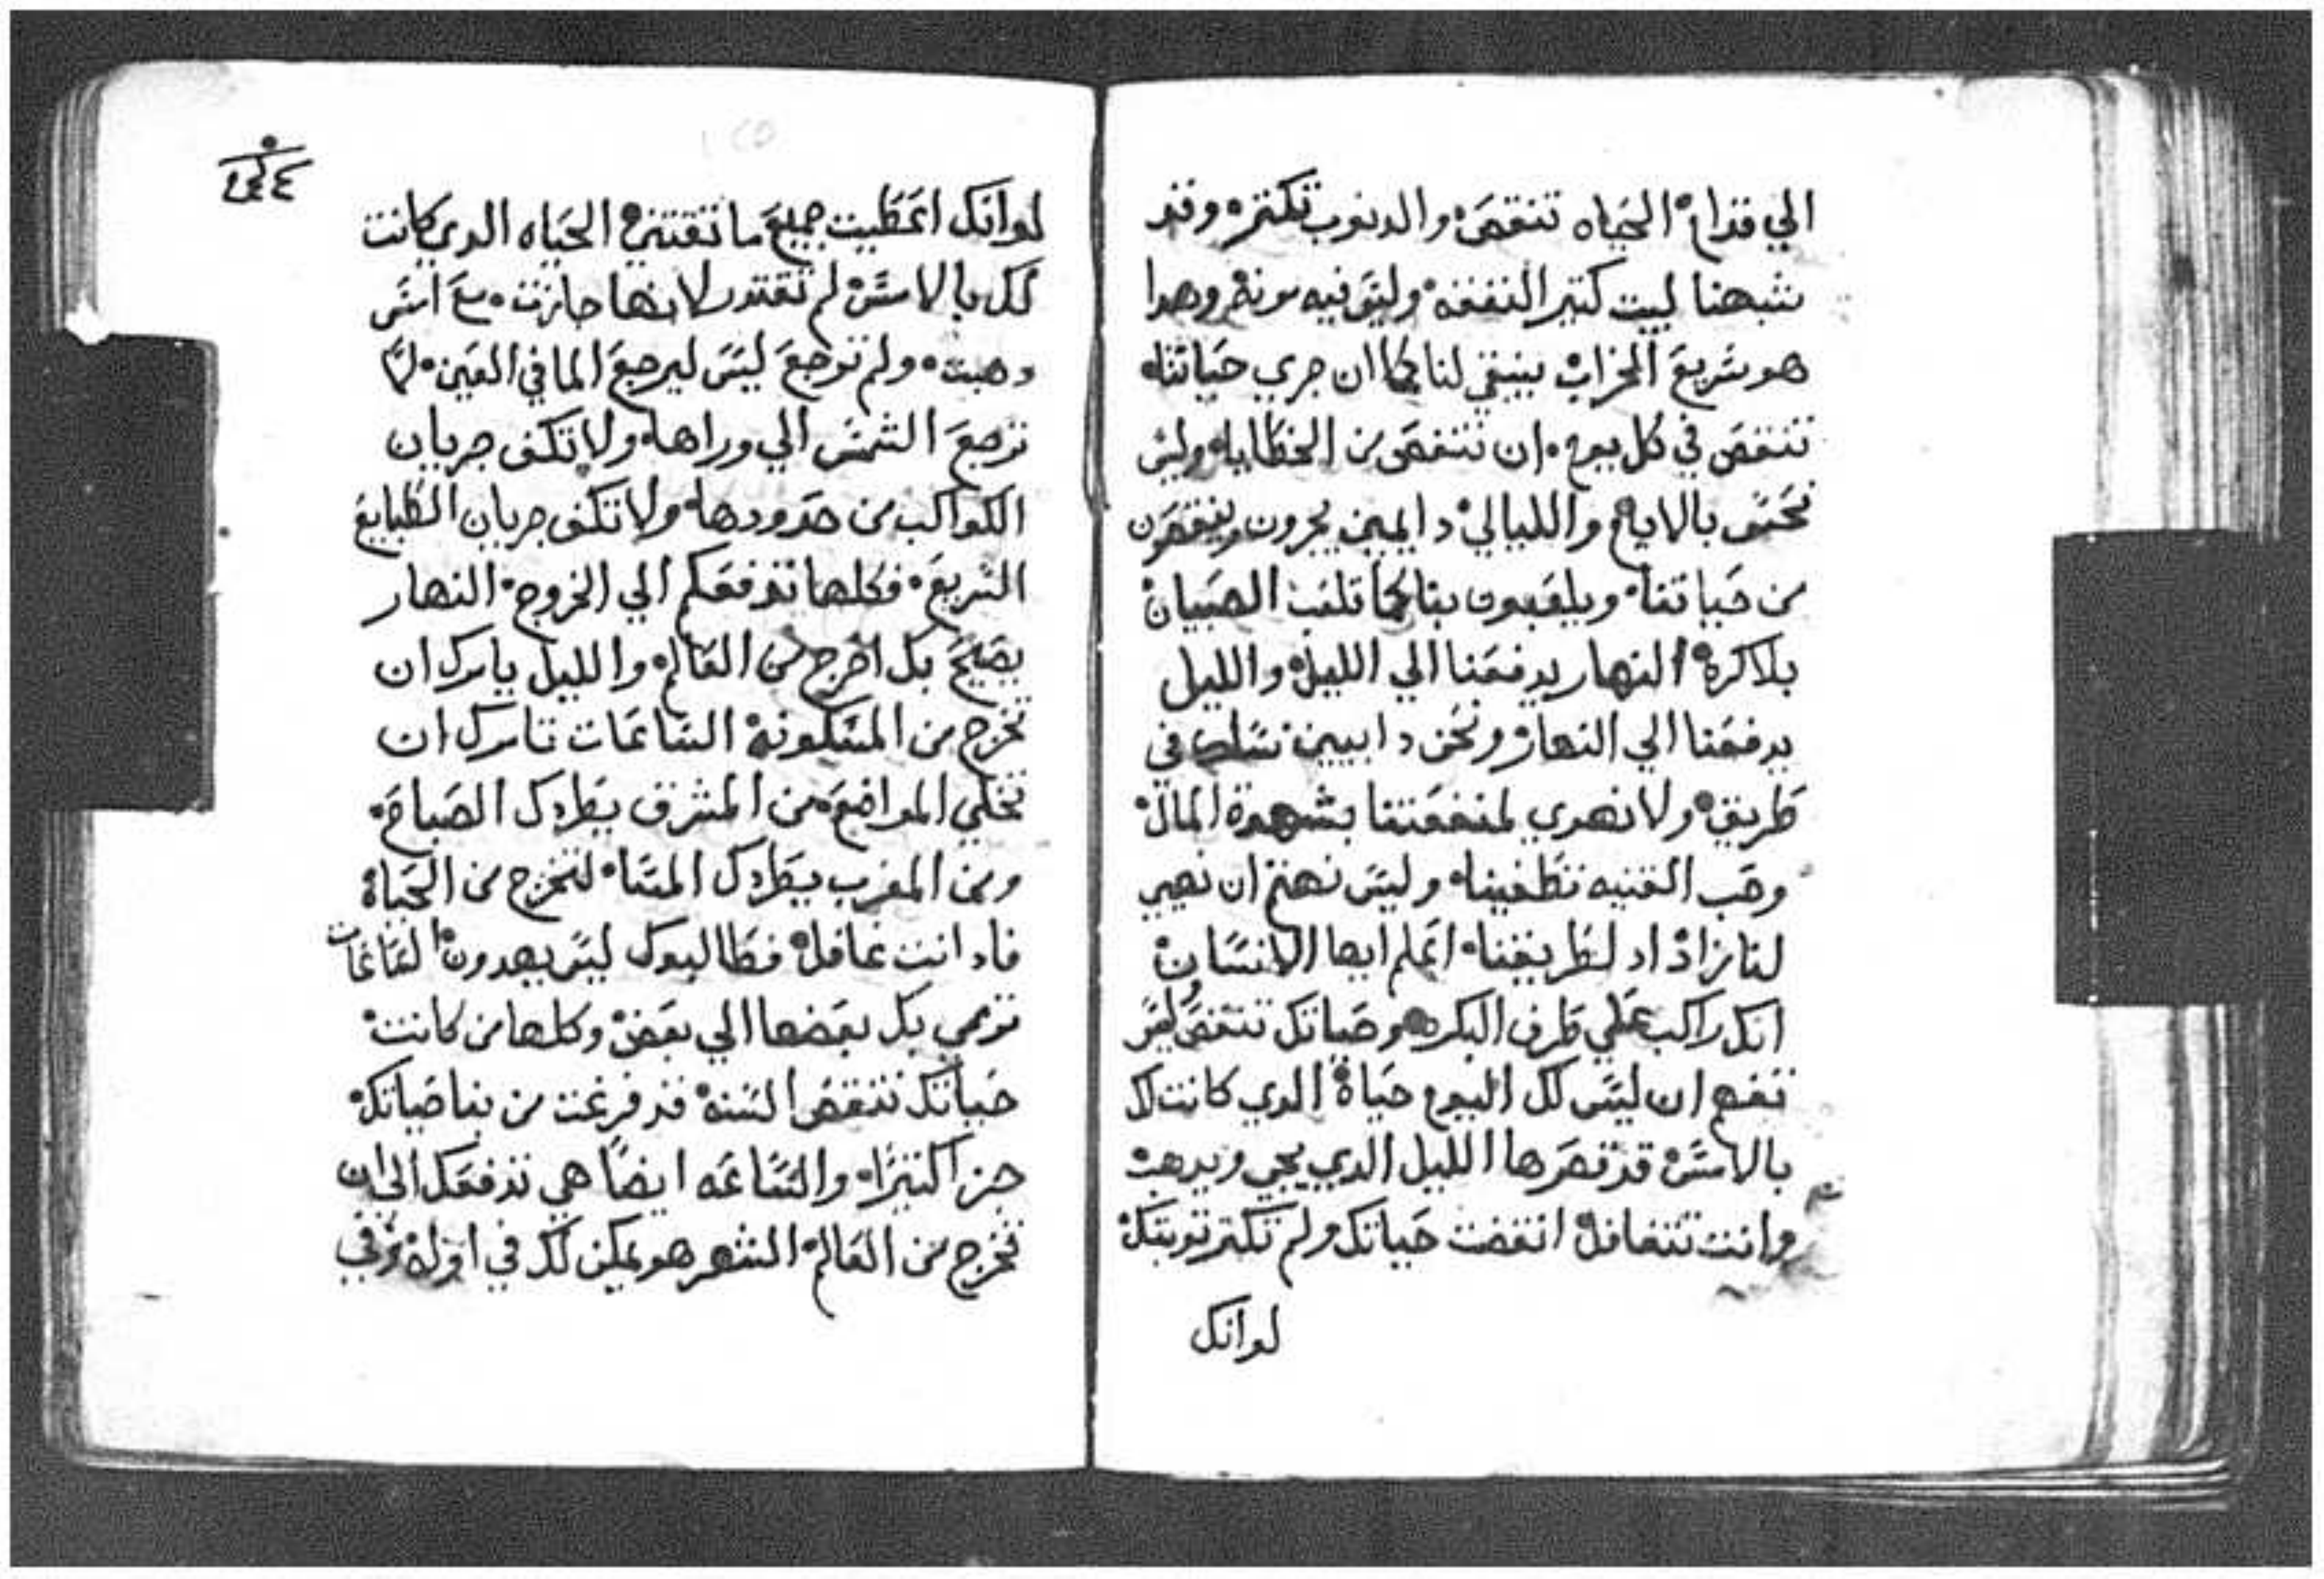 الي قدام الحياه تنقص والدنوب تكتر وقد
شبهنا لبيت كتير النفقه وليس فيه مونه وهدا
هو سريع الخراب ينبغي لنا كما ان جري حياتنا
تنقص في كل يوم ان تنقص من الخطايا وليس
نحس بالايام والليالي دايمين يجرون وينقصون
من حياتنا ويلعبون بنا كما تلعب الصبيان
بلاكره النهار يدفعنا الي الليل والليل
يدفعنا الي النهار ونحن دابيين نسلك في
طريق ولا نهدي لمنفعتنا بشهوة المال
وحب القنيه تطغينا وليس نهتم ان نهيي
لنا زاد لطريقنا اعلم ايها الانسان
انك راكب علي طرف البكره وحياتك تنقص وليس
تفهم ان ليس لك اليوم حياة الدي كانت لك
بالامس قد قصرها الليل الدي يجي ويدهب
وانت تتغافل انقضت حياتك ولم تكتر توبتك
لو انك
لو انك اعطيت جميع ما تقتني الحياه الدي كانت
لك بالامس لم تقتدر لانها جازت مع امس
دهبت ولم ترجع ليس ليرجع الما في العين لما
ترجع الشمس الي وراها ولا تكف جريان
الكواكب من حدودها ولا تكف جريان الطبايع
السريع فكلها تدفعكم الي الخروج النهار
يصيح بك اخرج من العالم والليل يامرك ان
تخرج من المسكونه الساعات تامرك ان
تخلي المواضع من المشرق يطردك الصباح
ومن المغرب يطردك المسا لتخرج من الحياة
فاد انت غافل فطالبوك ليس يهدون الساعات
ترمي بك بعضها الي بعض وكلها من كانت
حياتك تنقص السنه قد فرغت من بنا حياتك
جزا كتيرا والساعه ايضا هي تدفعك الي ان
تخرج من العالم الشهر هو يمكن لك في اوله